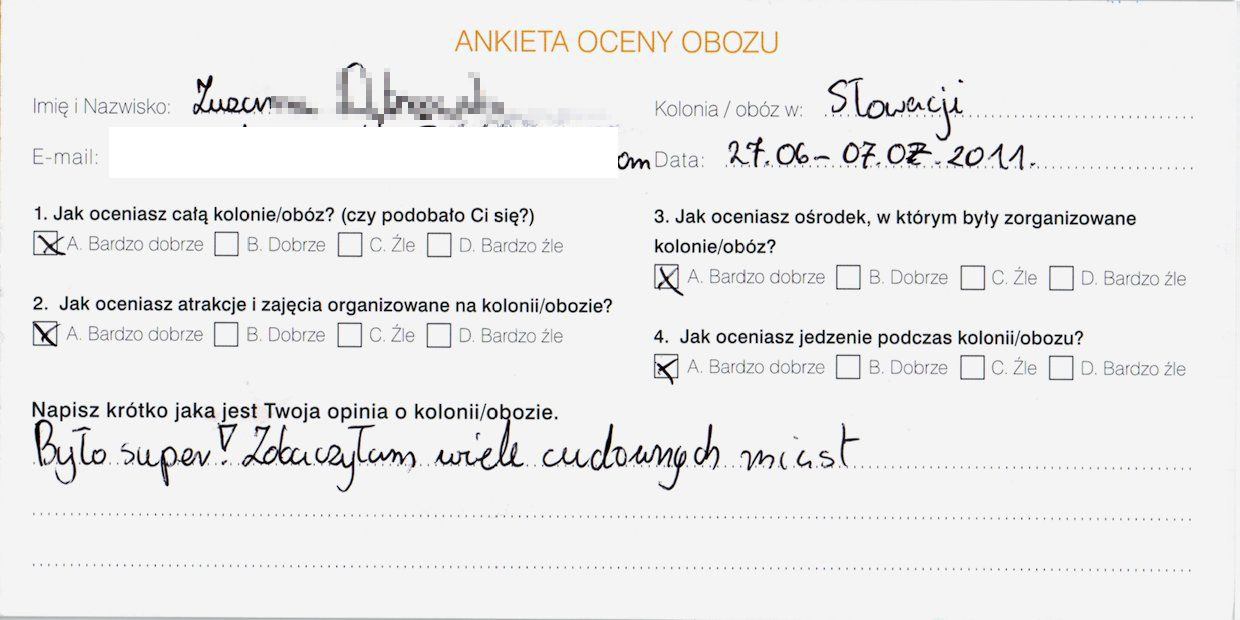 ANKIETA OCENY OBOZU
Imię i Nazwisko:
E-mail: om
Kolonia / obóz w: Słowacji
Data: 27.06 – 07.07.2011.
1. Jak oceniasz całą kolonie/obóz? (czy podobało Ci się?)
A. Bardzo dobrze B. Dobrze C. Źle D. Bardzo źle
2. Jak oceniasz atrakcje i zajęcia organizowane na kolonii/obozie?
A. Bardzo dobrze B. Dobrze C. Źle D. Bardzo źle
3. Jak oceniasz ośrodek, w którym były zorganizowane
kolonie/obóz?
A. Bardzo dobrze B. Dobrze C. Źle D. Bardzo źle
4. Jak oceniasz jedzenie podczas kolonii/obozu?
A. Bardzo dobrze B. Dobrze C. Źle D. Bardzo źle
Napisz krótko jaka jest Twoja opinia o kolonii/obozie.
Było super! Zobaczyłam wiele cudownych miast